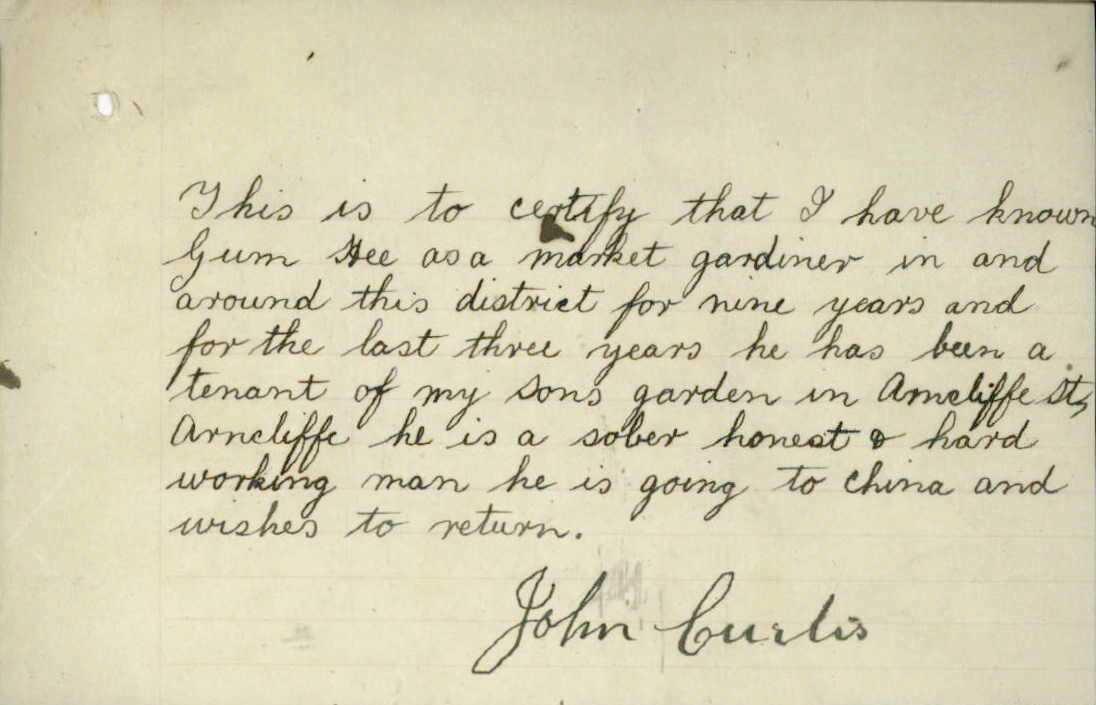 This is to certify that I have known
Gum Hee as a market gardiner in and
around this district for nine years and
for the last three years he has been a
tenant of my sons garden in Arncliffe St,
Arncliffe he is a sober honest & hard
working man he is going to China and
wishes to return.
John Curtis